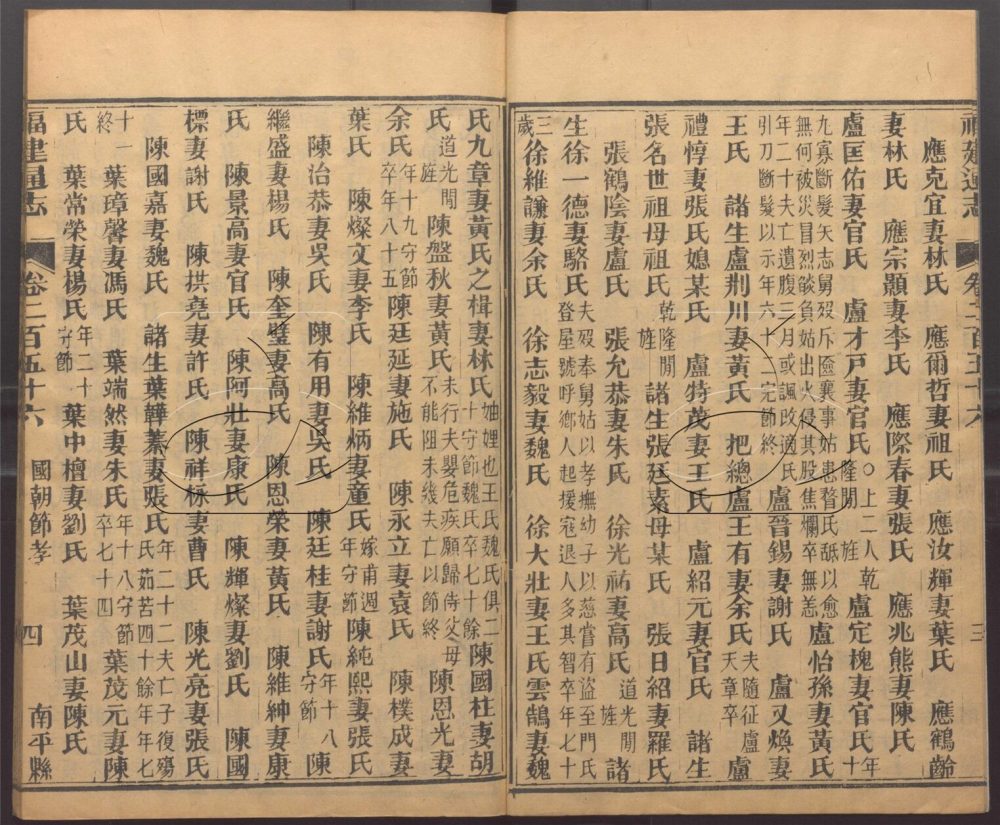 福建通志 卷二百五十六 三
應克宜妻林氏 應爾哲妻祖氏 應汝輝妻葉氏 應鶴齡
妻林氏 應宗顯妻李氏 應際春妻張氏 應兆熊妻陳氏
盧匡佑妻官氏 盧才戶妻官氏 隆閒旌 ○上二人乾 盧定槐妻官氏 年十
九寡斷髮矢志舅歿斥匳襄事姑患瞽氏舐以愈
無何被災冒烈燄負姑出火侵其股焦爛卒無恙 盧怡孫妻黃氏
年二十夫亡遺腹三月或諷改適氏
引刀斷髮以示年六十二完節終 盧晉錫妻謝氏 盧又煥妻
王氏 諸生盧荆川妻黃氏 把總盧王有妻余氏 夫隨征盧天章卒 盧
禮惇妻張氏媳某氏 盧特茂妻王氏 盧紹元妻官氏 諸生
張名世祖母祖氏 乾隆閒旌 諸生張廷素母某氏 張日紹妻羅氏
張鶴陰妻盧氏 張允恭妻朱氏 徐光祐妻高氏 道光閒旌 諸
生徐一德妻駱氏 夫歿奉舅姑以孝撫幼子以慈嘗有盜至門氏
登屋號呼鄉人起援寇退人多其智卒年七十
三歲 徐維謙妻余氏 徐志毅妻魏氏 徐大壯妻王氏雲鵠妻魏
氏九章妻黃氏之楫妻林氏 妯娌也王氏魏氏俱二
十守節魏氏卒七十餘 陳國柱妻胡
氏 道光閒旌 陳盤秋妻黃氏 未行夫嬰危疾願歸侍父母
不能阻未幾夫亡以節終 陳恩光妻
余氏 年十九守節
卒年八十五 陳廷延妻施氏 陳永立妻袁氏 陳樸成妻
葉氏 陳燦文妻李氏 陳維炳妻童氏 嫁甫週年守節 陳純熙妻張氏
陳治恭妻吳氏 陳有用妻吳氏 陳廷桂妻謝氏 年十八守節 陳
繼盛妻楊氏 陳奎璧妻高氏 陳恩榮妻黃氏 陳維紳妻康
氏 陳景高妻官氏 陳阿壯妻康氏 陳輝燦妻劉氏 陳國
標妻謝氏 陳拱堯妻許氏 陳祥標妻曹氏 陳光亮妻張氏
陳國嘉妻魏氏 諸生葉韡蓁妻張氏 年二十二夫亡子復殤
氏茹苦四十餘年年七
十一終 葉璋馨妻馮氏 葉端然妻朱氏 年十八守節
卒七十四 葉茂元妻陳
氏 葉常榮妻楊氏 年二十守節 葉中檀妻劉氏 葉茂山妻陳氏
福建通志 卷二百五十六 國朝節孝 四 南平縣